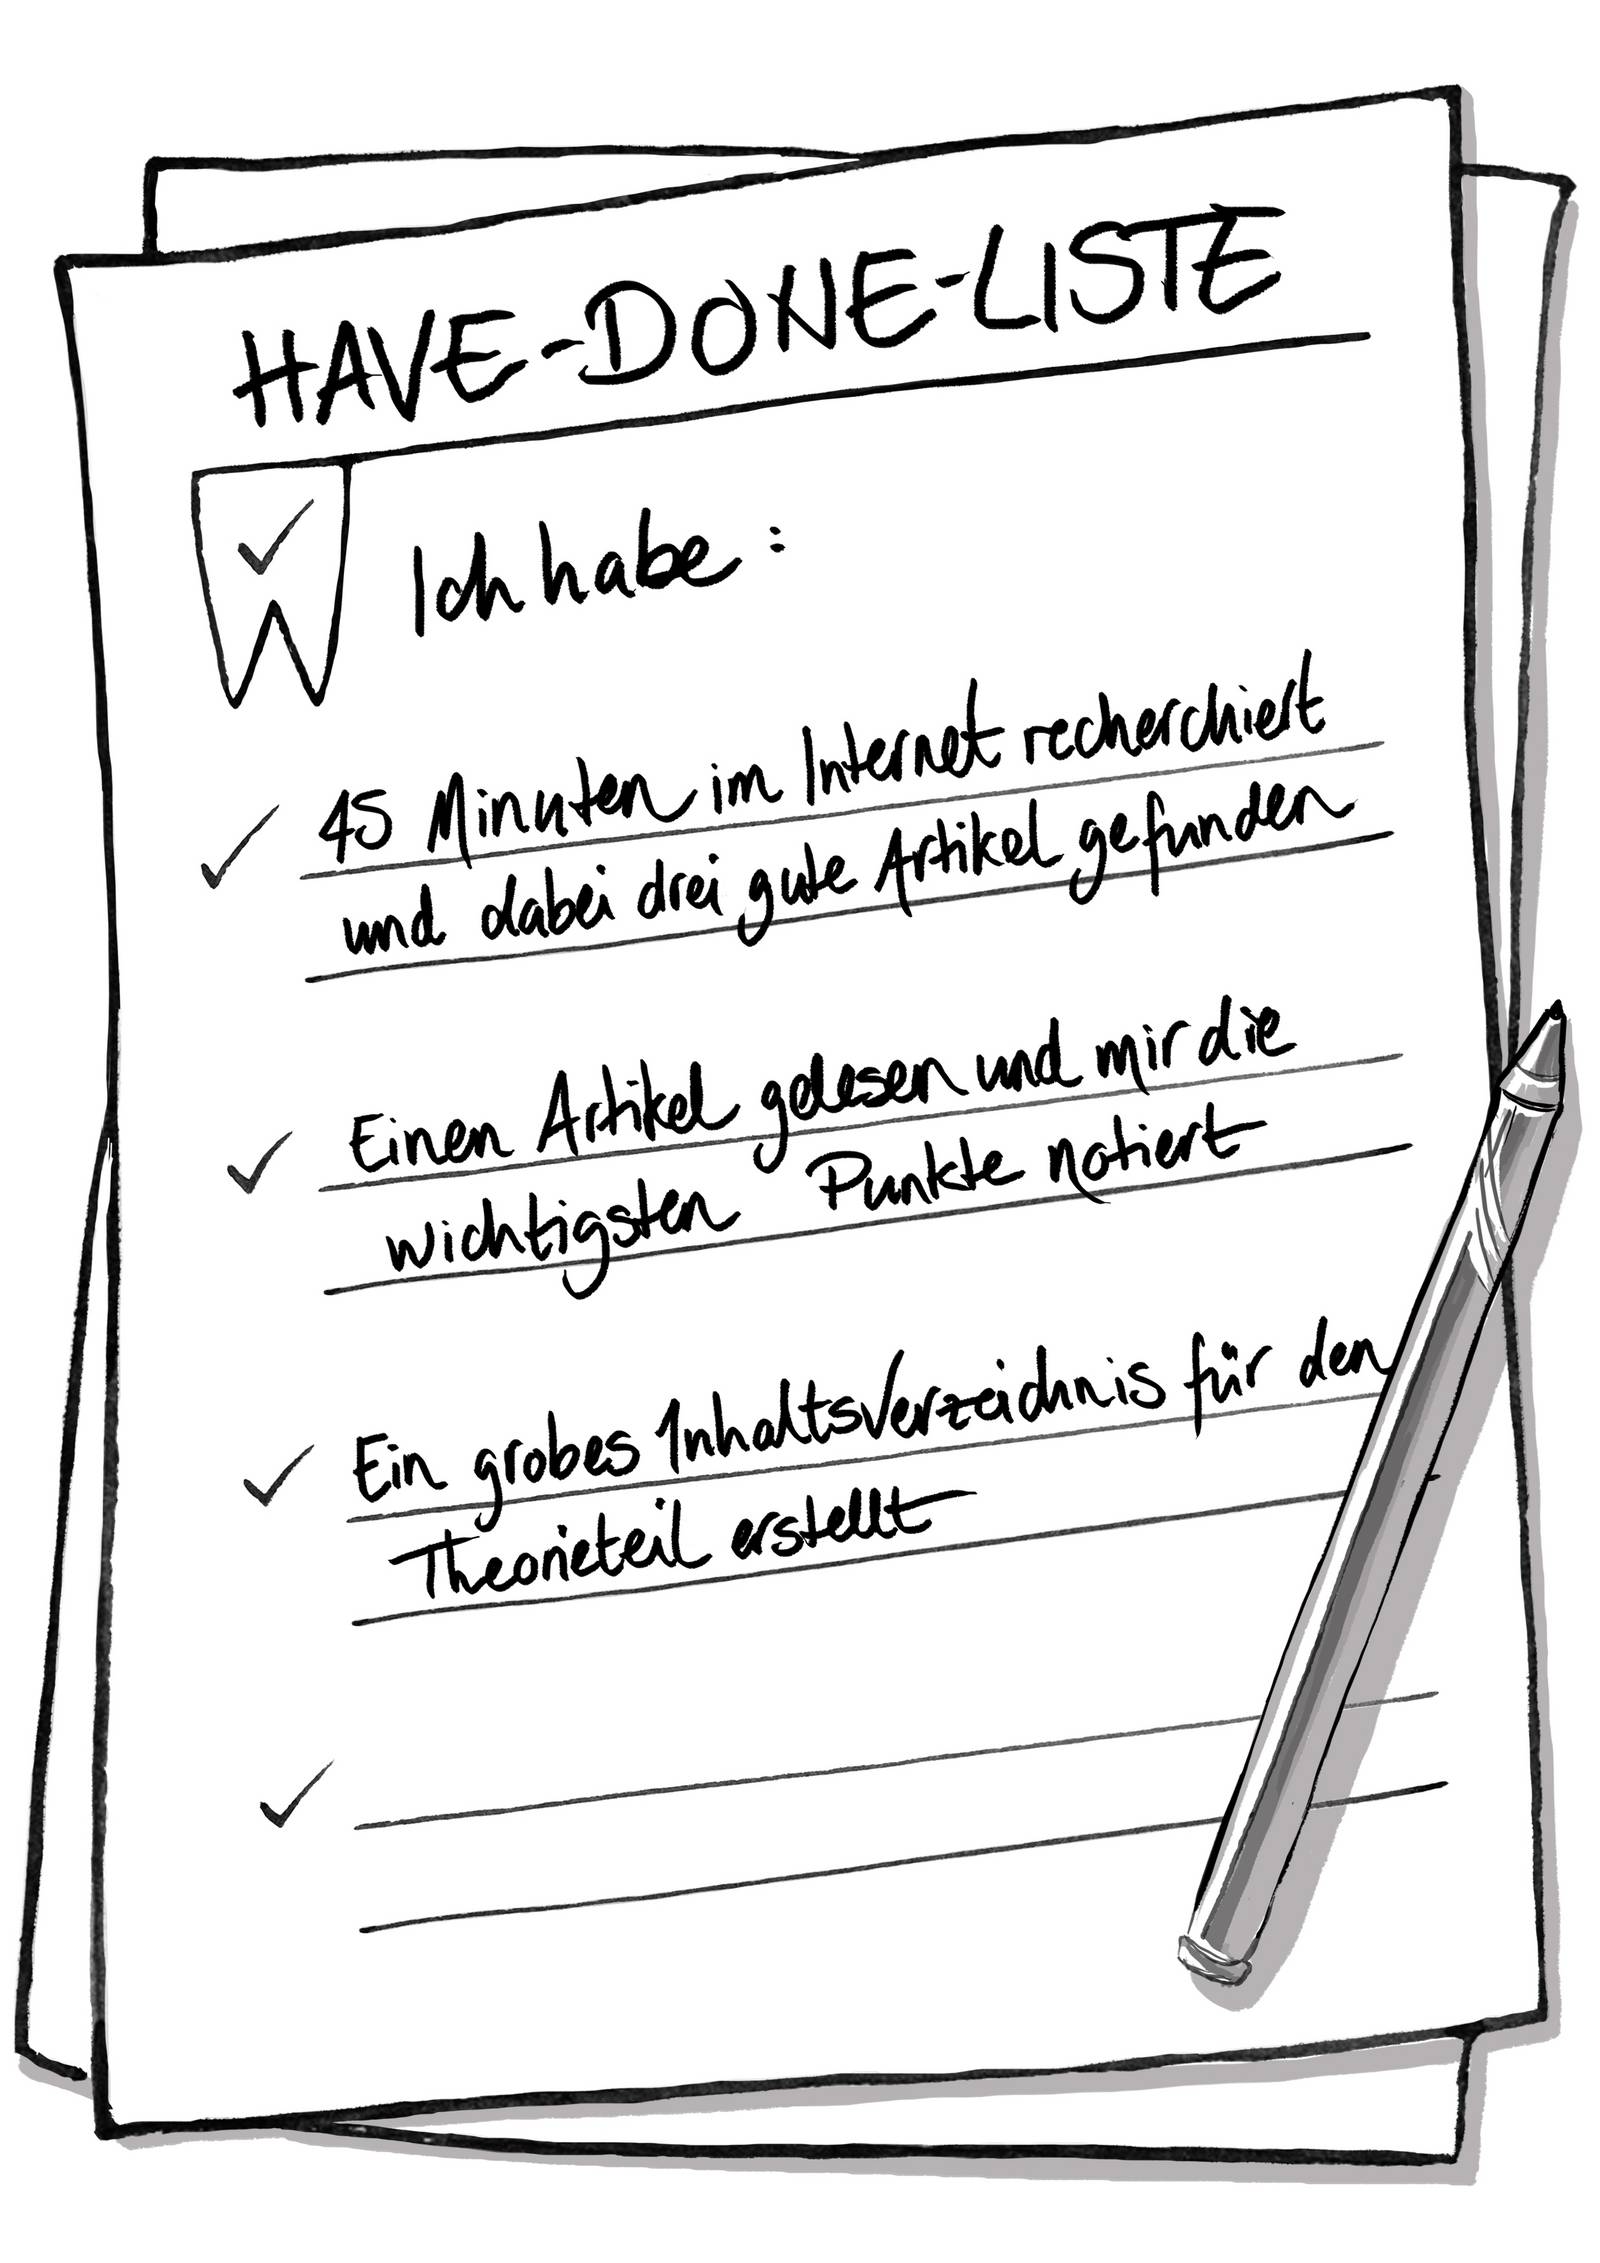 HAVE-DONE-LISTE
Ich habe:
45 Minuten im Internet recherchiert
und dabei drei gute Artikel gefunden
Einen Artikel gelesen und mir die
wichtigsten Punkte notiert
Ein grobes Inhaltsverzeichnis für den
Theorieteil erstellt